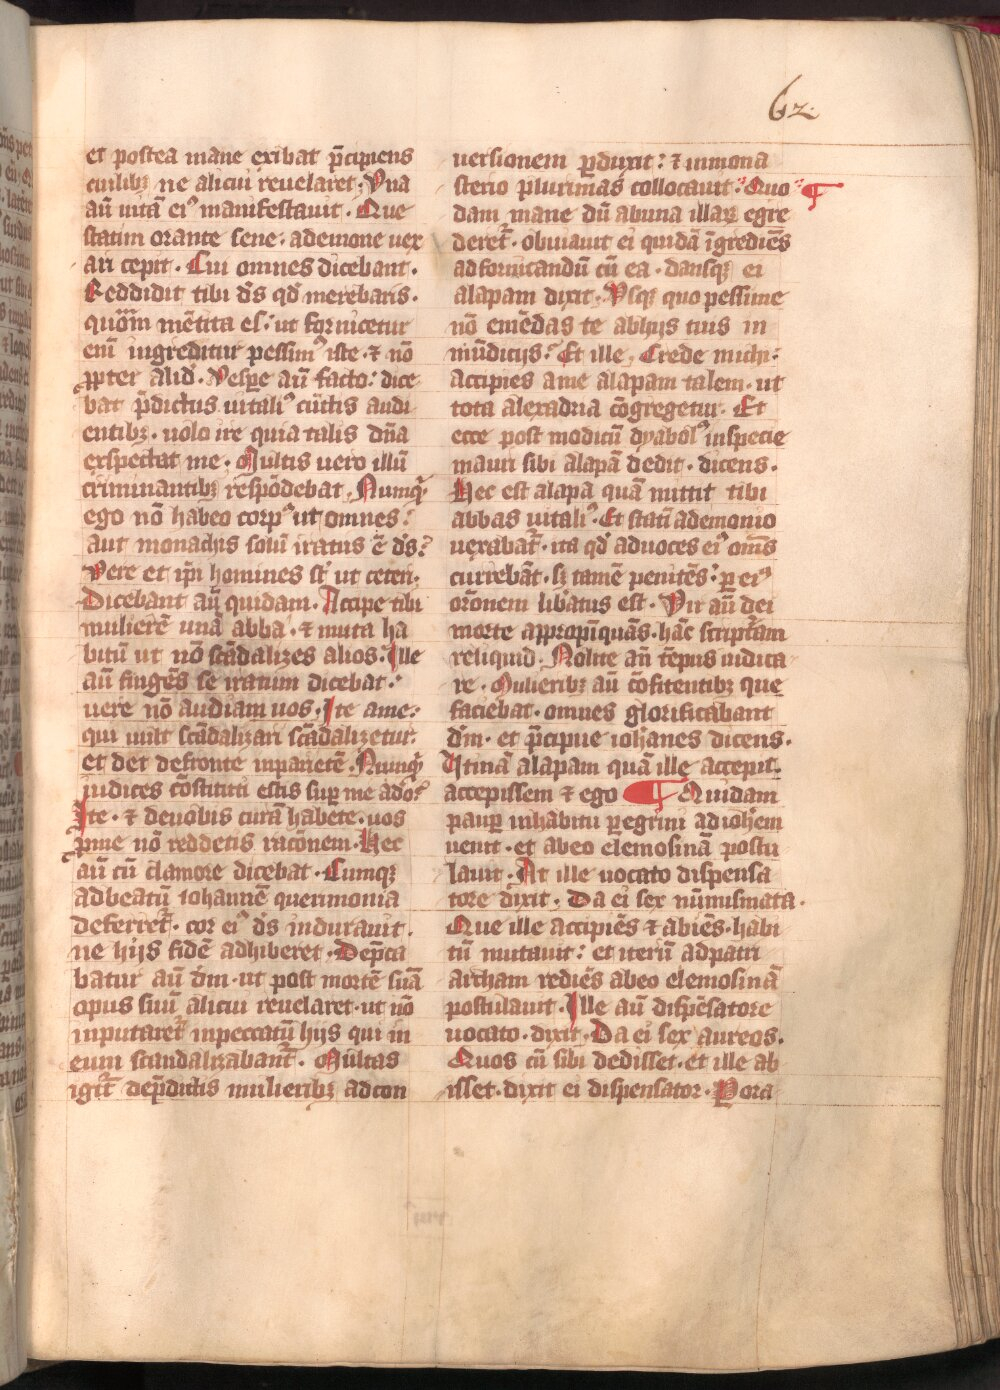 62.
et postea mane exibat p̄cipiens
cuilibꝫ ne alicui reuelaret. Vna
aū uitā eiꝰ manifestauit. Que
statim orante sene: ademone uex
ari cepit. Cui omnes dicebant.
Reddidit tibi dꝰs qd̓ merebaris.
quōm mētita es: ut fornicetur
eni̅ ingreditur pessimꝰ iste. ⁊ nō
ꝓpter alid̓. Vespe̅ aū facto: dice
bat p̄dictus uitaliꝰ cūctis audi
entibꝫ. uolo ire quia talis dn̄a
exspectat me. Multis uero illū
criminantibꝫ respōdebat. Nunqͥ
ego nō habeo corpꝰ ut omnes?
aut monachis solū iratus ē dꝰs?
Vere et ip̄i homines st̄ ut ceteri.
Dicebant aū quidam. Accipe tibi
mulierē unā abba. ⁊ muta ha
bitū ut nō scādalizes alios. Ille
aū fingēs se iratum dicebat.
uere nō audiam uos. Ite ame:
qui uult scādalizari scādalizetur.
et det defronte inparietē. Nunqͥ
iudices cōstituti estis sup̄ me ado?
Ite. ⁊ deuobis curā habete. uos
ꝓme nō reddetis racōnem. Hec
aū cū clamore dicebat. Cumqꝫ
adbeatū iohannē querimonia
deferret̄. cor eiꝰ dꝰs indurauit.
ne hijs fidē adhiberet. Dep̄ca
batur aū dm̄. ut post mortē suā
opus suū alicui reuelaret. ut nō
inputaret̄ inpeccatū hijs qui in
eum scandalizabant̄. Multas
igit̄ dep̄dictis mulieribꝫ adcon
uersionem ꝑduxit: ⁊ inmona
sterio plurimas collocauit. Quo ¶
dam mane dū abuna illaꝝ egre
deret̄. obuiauit ei quidā īgrediēs
adfornicandū cū ea. dansqꝫ ei
alapam dixit. Vsqꝫ quo pessime
nō emēdas te abhijs tuis in
mūdicijs? Et ille. Crede michi:
accipies ame alapam talem. ut
tota alexādria cōgregetur. Et
ecce post modicū dyabolꝰ inspecie
mauri sibi alapā dedit. dicens.
Hec est alapa quā mittit tibi
abbas uitaliꝰ. Et statī ademonio
uexabat̄. ita qd̓ aduoces eiꝰ om̄s
currebāt. sꝫ tamē penitēs: ꝑ eiꝰ
orōnem lib̄atus est. Vir aū dei
morte appropīquās. hāc scriptām
reliquid. Nolite an̄ tēpus iudica
re. Mulieribꝫ aū cōfitentibꝫ que
faciebat. omnes glorificabant
dm̄. et p̄cipue iohānes dicens.
Vtinā alapam quā ille accepit.
accepissem ⁊ ego ¶ Quidam
paup̄ inhabitu peregrini ad ioh̄em
uenit. et abeo elemosinā postu
lauit. At ille uocato dispensa
tore dixit. Da ei sex nūmismata.
Que ille accipiēs ⁊ abiēs. habi
tū mutauit: et iterū adpatri
archam rediēs abeo elemosinā
postulauit. Ille aū dispēsatore
uocato. dixit. Da ei sex aureos.
Quos cū sibi dedisset. et ille ab
isset. dixit ei dispensator. Rora